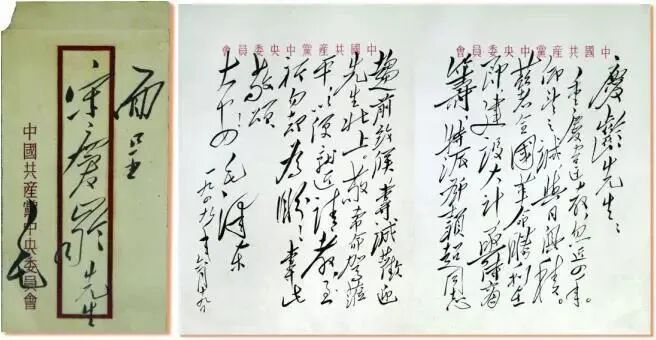 面呈
宋慶齡先生
中國共產黨中央委員會
毛
中國共產黨中央委員會
慶齡先生：
重慶違教，忽近四年。
仰望之誠，與日俱積。
茲者全國革命勝利在
即，建設大計，亟待商
籌，特派鄧穎超同志
中國共產黨中央委員會
趨前致候，專誠歡迎
先生北上。敬希命駕莅
平，以便就近請教，至
祈勿却為盼！專此
敬頌
大安！
毛澤東
一九四九年六月十九日